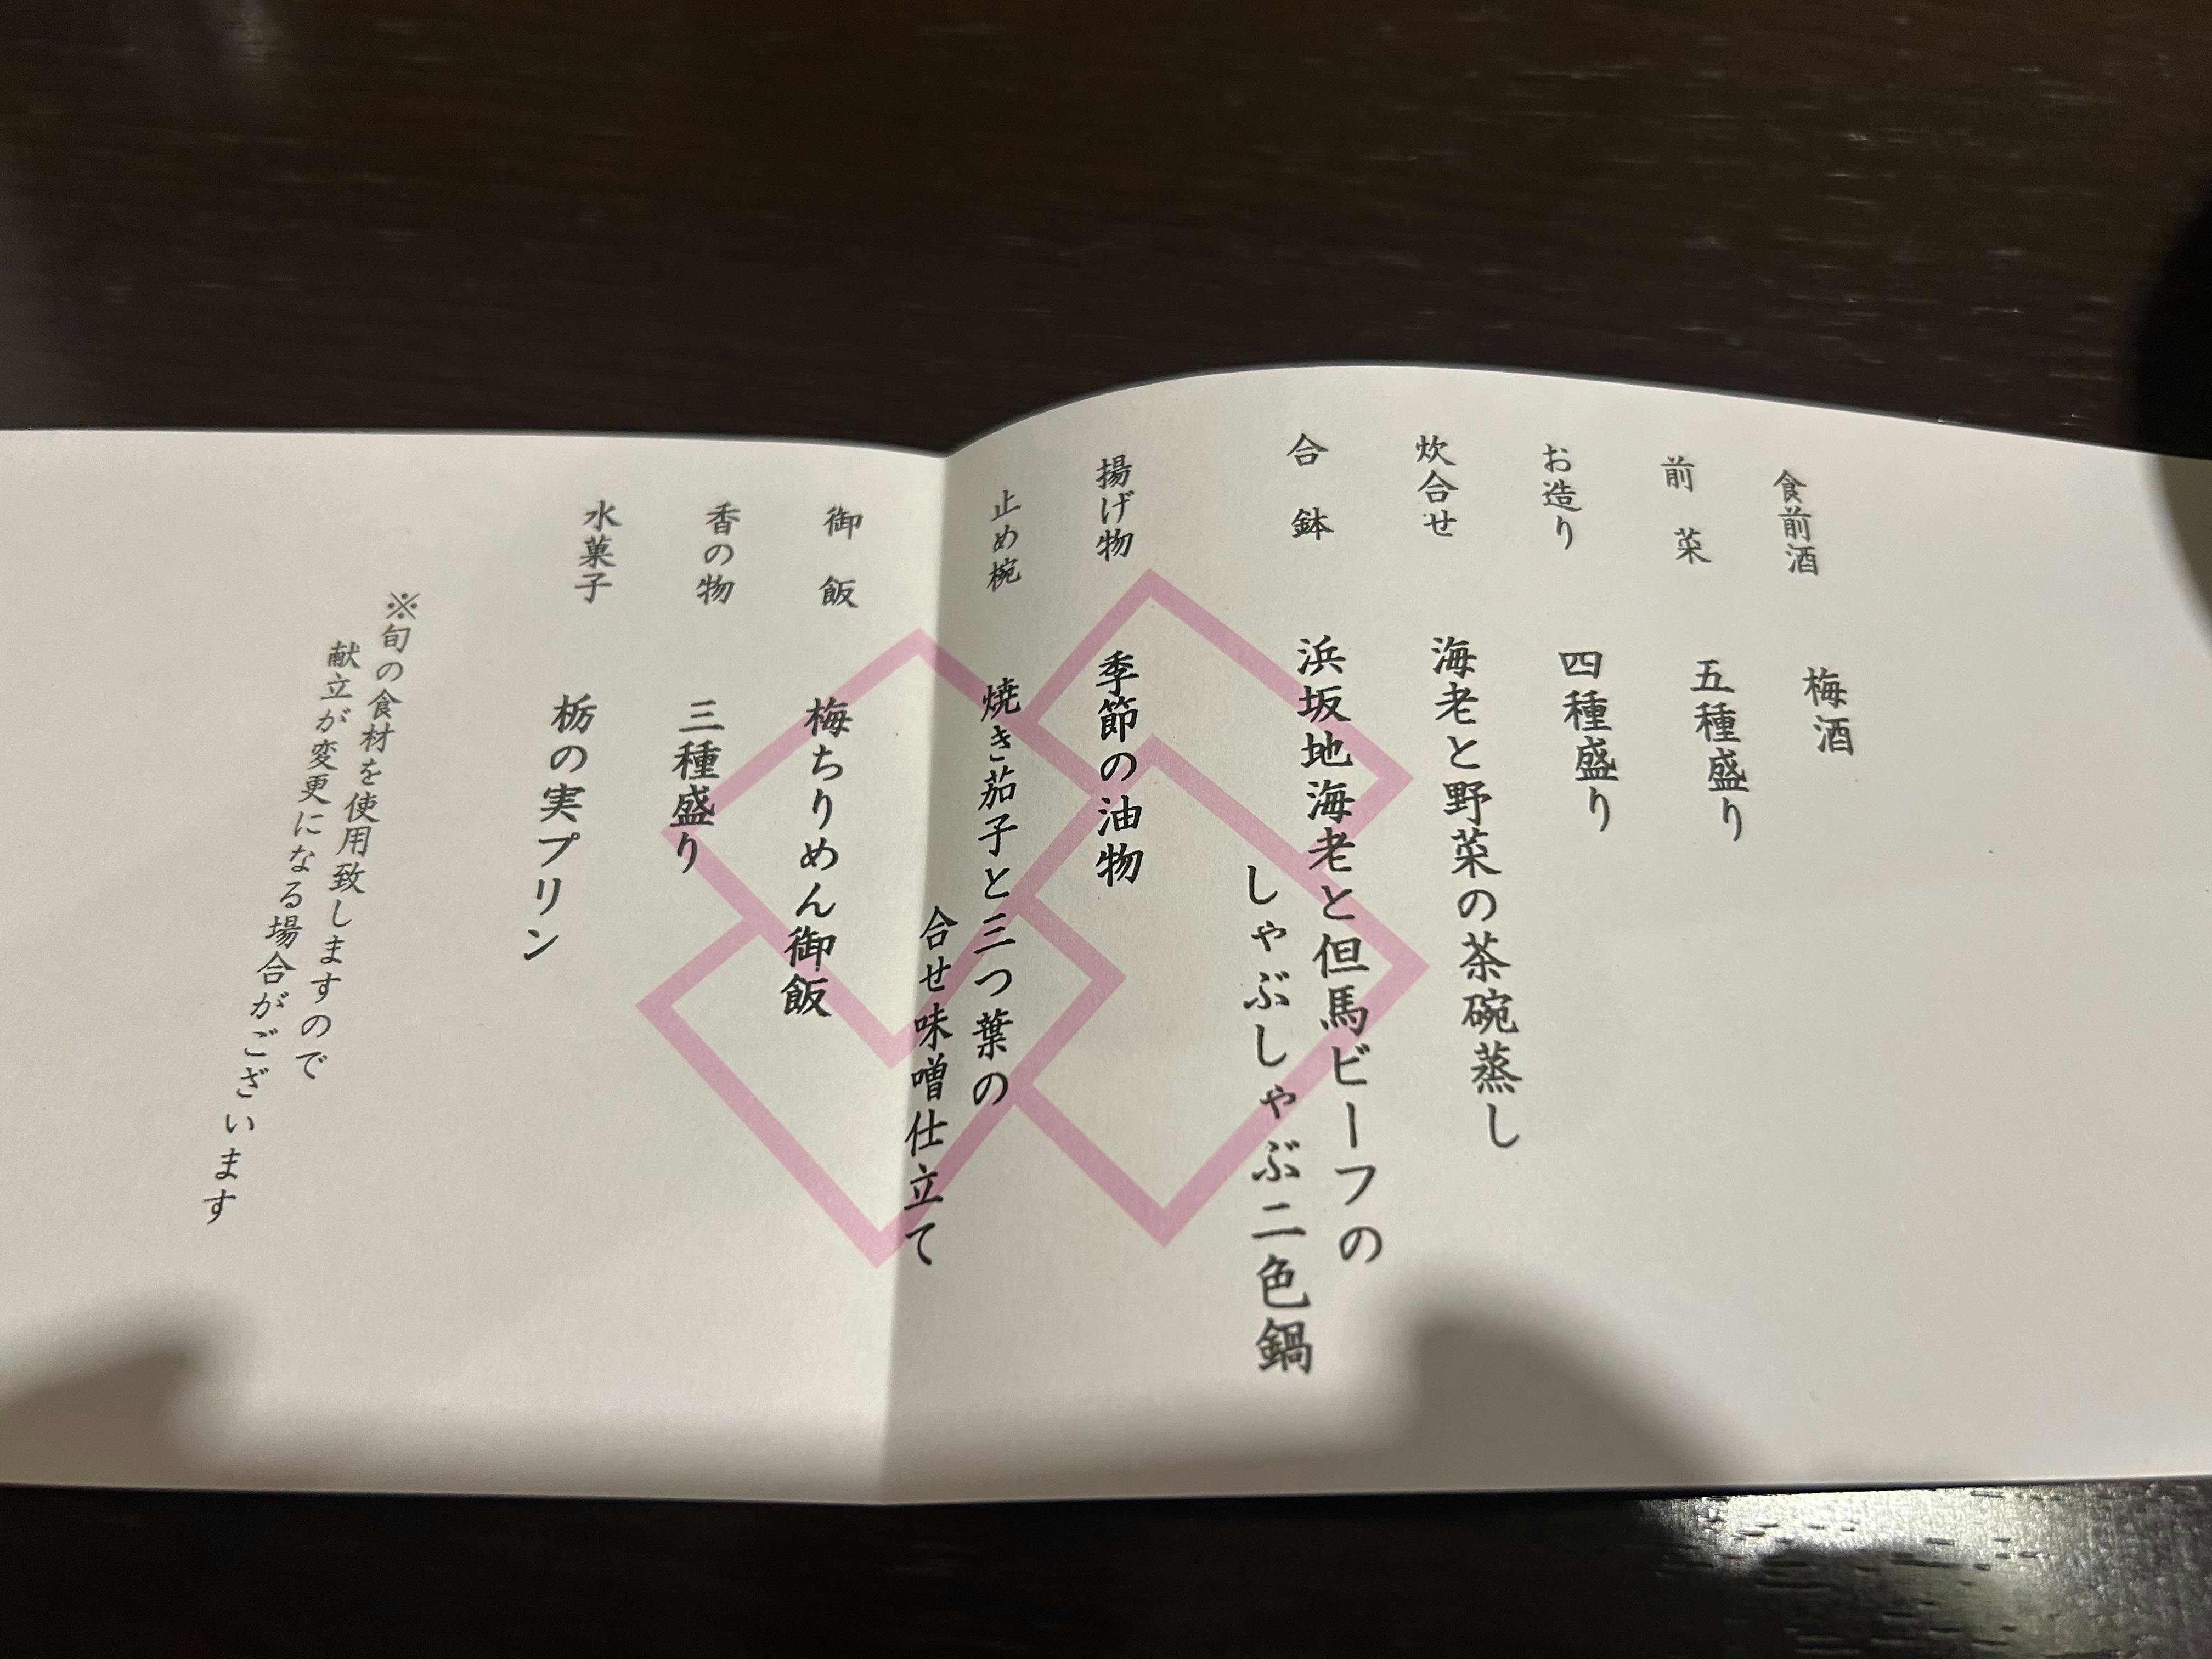 食前酒 梅酒
前菜 五種盛り
お造り 四種盛り
炊合せ 海老と野菜の茶碗蒸し
合鉢 浜坂地海老と但馬ビーフの
しゃぶしゃぶ二色鍋
揚げ物 季節の油物
止め椀 焼き茄子と三つ葉の
合せ味噌仕立て
御飯 梅ちりめん御飯
香の物 三種盛り
水菓子 栃の実プリン
※旬の食材を使用致しますので
献立が変更になる場合がございます